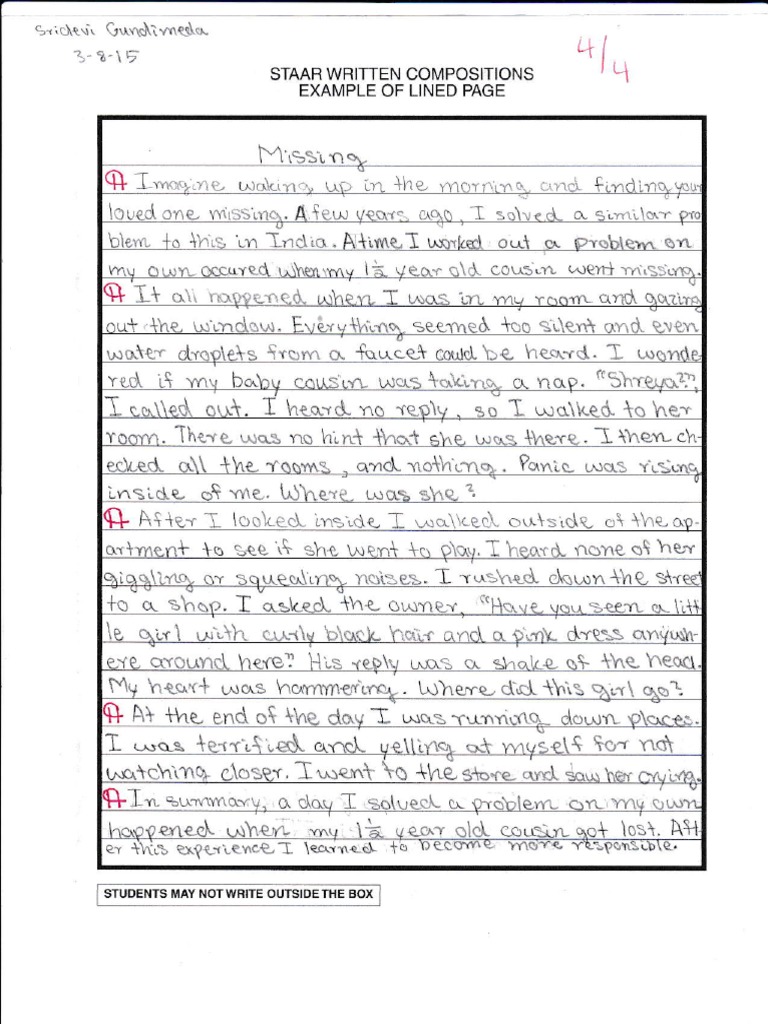 Sridevi Gundimeda
3-8-15
4/4
STAAR WRITTEN COMPOSITIONS
EXAMPLE OF LINED PAGE
Missing
Imagine waking up in the morning and finding your
loved one missing. A few years ago, I solved a similar pro
blem to this in India. A time I worked out a problem on
my own occured when my 1½ year old cousin went missing.
It all happened when I was in my room and gazing
out the window. Everything seemed too silent and even
water droplets from a faucet could be heard. I wonde
red if my baby cousin was taking a nap. "Shreya??",
I called out. I heard no reply, so I walked to her
room. There was no hint that she was there. I then ch-
ecked all the rooms, and nothing. Panic was rising
inside of me. Where was she?
After I looked inside I walked outside of the ap-
artment to see if she went to play. I heard none of her
giggling or squealing noises. I rushed down the street
to a shop. I asked the owner, "Have you seen a litt
le girl with curly black hair and a pink dress anywh-
ere around here?" His reply was a shake of the head.
My heart was hammering. Where did this girl go?
At the end of the day I was running down places.
I was terrified and yelling at myself for not
watching closer. I went to the store and saw her crying.
In summary, a day I solved a problem on my own
happened when my 1½ year old cousin got lost. Aft
er this experience I learned to become more responsible.
STUDENTS MAY NOT WRITE OUTSIDE THE BOX